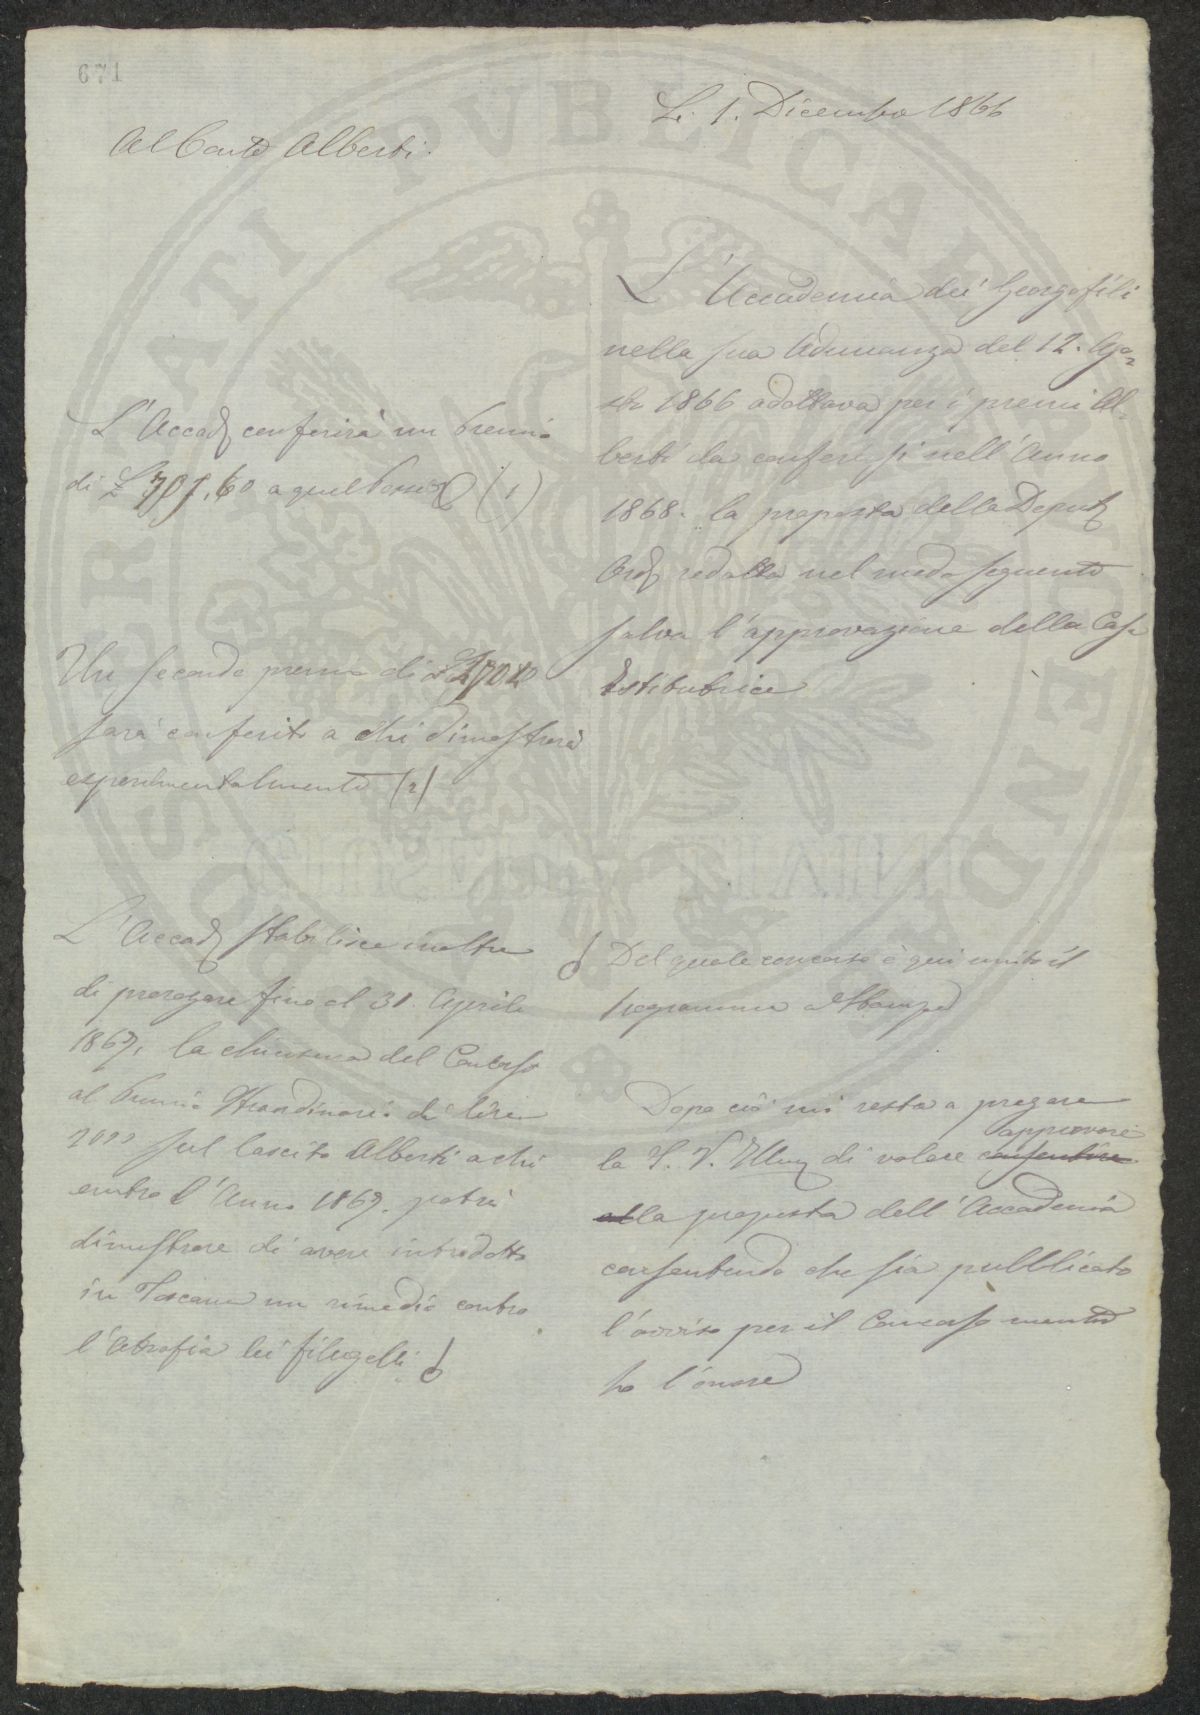 671
Li 1. Dicembre 1866
Al Conte Alberti.
L'Accademia dei Georgofili
nella sua Adunanza del 12. Ago
sto 1866 adottava per i premi Al
berti da conferirsi nell'Anno
1868. la proposta della Deput
Ord redatta nel modo seguente
salva l'approvazione della Casa
Istitutrice
L'Accad conferirà un Premio
di £ 705,60 a quel (1)
Un secondo premio di £
sarà conferito a chi dimostrerà
esperimentalmente (2)
L'Accad stabilisce inoltre
di prorogare fino al 31. Aprile
1867, la chiusura del Concorso
al Premio Straordinario di lire
sul lascito Alberti a chi
entro l'Anno 1867. potrà
dimostrare di avere introdotto
in Toscana un rimedio contro
l'Atrofia dei filugelli
Del quale concorso è qui unito il
Programma a stampa
Dopo ciò mi resta a pregare
approvare
la S. V. Illma di volere consentire
alla proposta dell'Accademia
consentendo che sia pubblicato
l'avviso per il Concorso mentre
ho l'onore
PVBLICAE